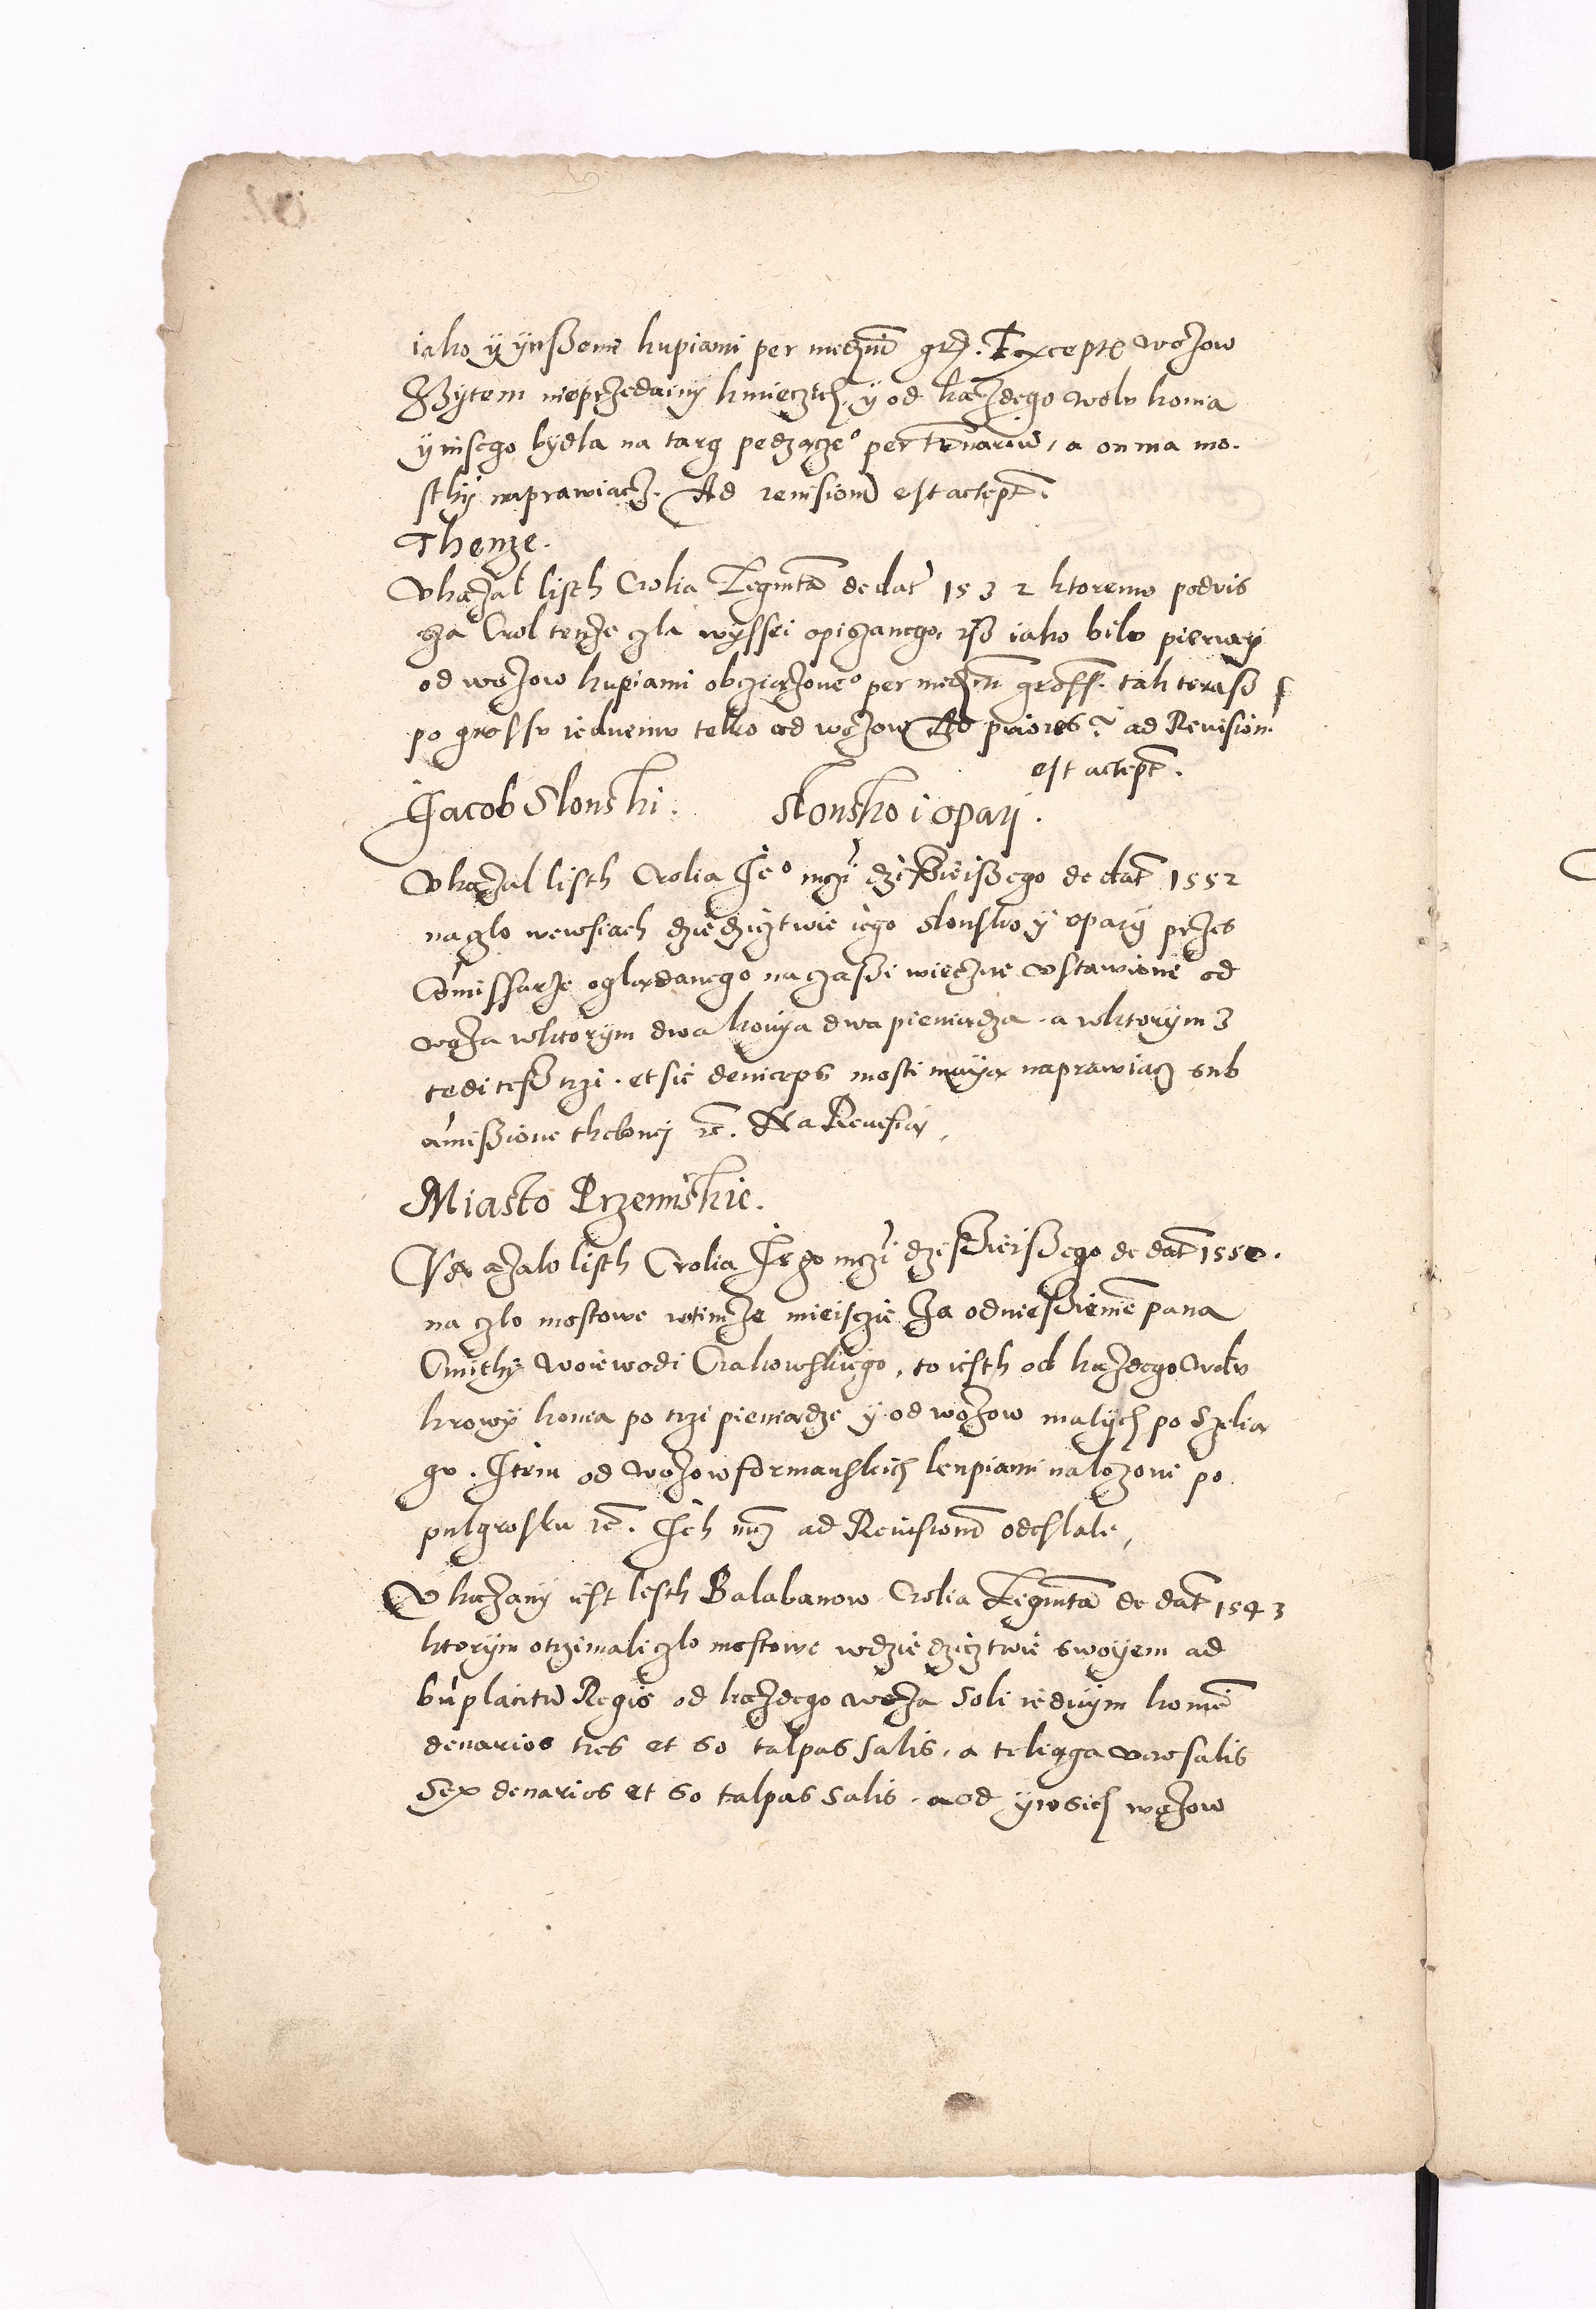 iako y ynssemi kupiami per mediu gro. Excepto wozow
Zzytem nieprzedainy kmieczich, y od kazdego wolu konia
y inszego bydla na targ pedzącze° per ternariu, a on ma mo-
sthy naprawiacz. Ad reuisione est accept.
Thenze.
Vkazal listh Crolia Zigmta de dat 1532 ktoremv podvis
sza Crol tenze czla wyssei opisanego, isz iako bilo pierwei
od wozow kupiami obcziązone° per mediu gross. tak terasz
po grossv iednemv telko od wozow Ad priores ad Reuision.
est accept.
Jacob Slonski. Slonsko i opari.
Vkazal listh Crolia Je° mczi dzisieiszego de dat 1552
na czlo wewsiach dziedzicztwie iego Slonsko y opary przes
Comissarze oglądanego na czassi wieczne vstawione od
woza wktorym dwa konya dwa pieniadza, a wktorym 3
tedi tesz trzi. et sic deinceps mosti mayą naprawiacz sub
amissione thelonei re. Na Reuisią,
Miasto Przemiskie.
Vkazalo listh Crolia Jego mczi dzisieiszego de dat 1550.
na czlo mostowe wtimze mieisczie za odniessieniem pana
Cmithy woiewodi Crakowskiego, to iesth od kazdego wolv
krowy konia po trzi pieniądze y od wozow malych po Szelią
gv. Item od wozow formanskich kupiami nalozoni po
pulgrosku re. Jch mcz ad Reuisione odeslali,
Vkazany iest listh Balabanow Crolia Zigmta de dat 1543
ktorym otrzimali czlo mostowe wdziedzicztwie swoyem ad
bn placitu Regis od kazdego woza Soli iednym koniem
denarios tres et 60 talpas salis, a teliega vero salis
Sex denarios et 60 talpas salis, a od ynssich wozow